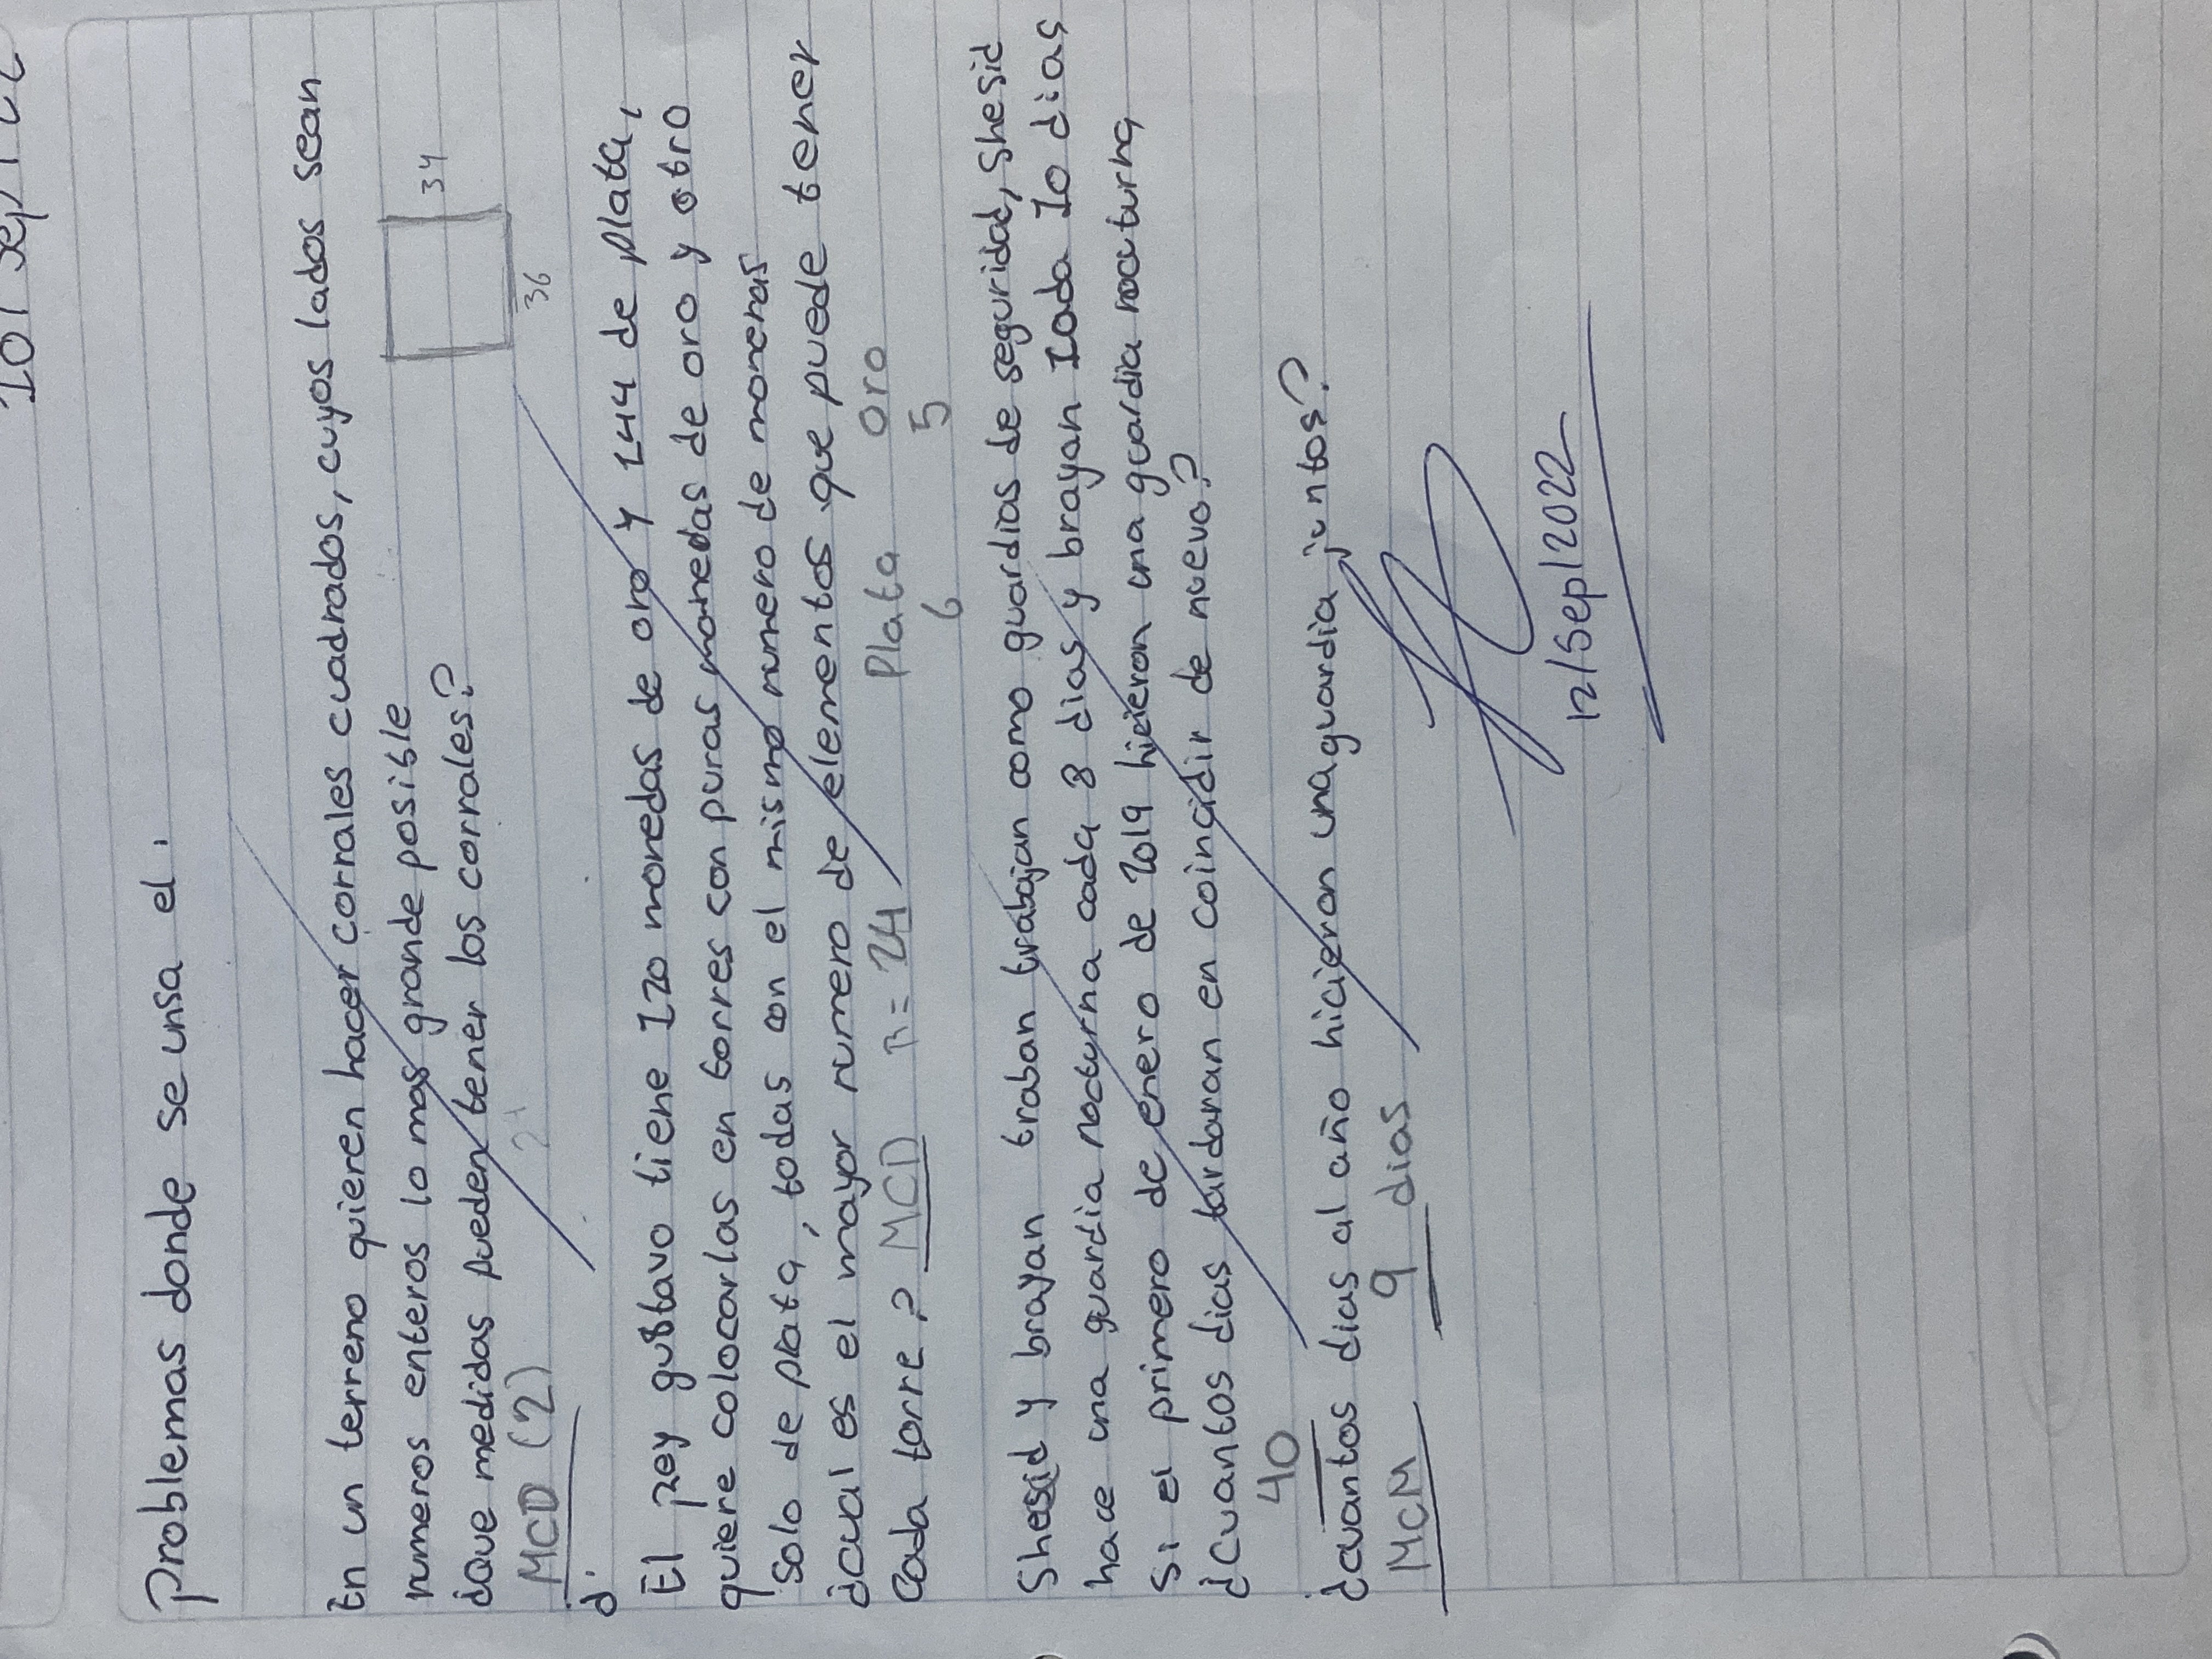 Problemas donde se unsa el.
En un terreno quieren hacer corrales cuadrados, cuyos lados sean
numeros enteros lo mas grande posible
¿que medidas pueden tener los corrales?
34
36
MCD (2)
d.
El rey gustavo tiene 120 monedas de oro y 144 de plata,
quiere colocarlas en torres con puras monedas de oro y otro
solo de plata, todas con el mismo numero de monenas
¿cual es el mayor numero de elementos que puede tener
cada torre? MCD R=24 Plata oro
6 5
Shesid y brayan traban trabajan como guardias de seguridad, shesid
hace una guardia nocturna cada 8 dias y brayan Iada 10 dias
Si el primero de enero de 2019 hicieron una guardia nocturna
¿Cuantos dias tardaran en coincidir de nuevo?
40
¿cuantos dias al año hicieron una guardia juntos?
MCM 9 dias
12/Sep/2022